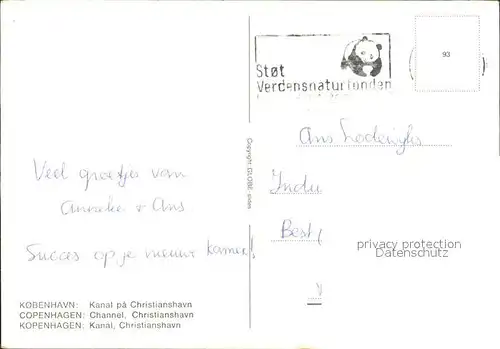 Støt
Verdensnaturfonden
93
Veel groetjes van
Anneke + Ans
Succes op je nieuwe kamer!
Ans Lodewijks
Indu
Best
Copyright: GLOBE
privacy protection
Datenschutz
KØBENHAVN: Kanal på Christianshavn
COPENHAGEN: Channel, Christianshavn
KOPENHAGEN: Kanal, Christianshavn